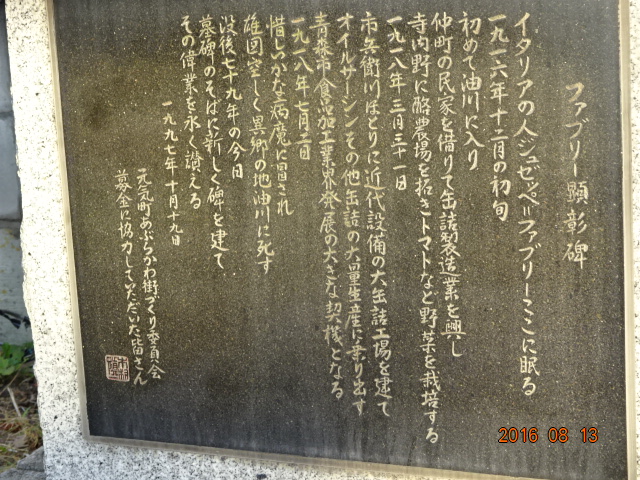 ファブリー顕彰碑
イタリアの人ジュゼッペ=ファブリーここに眠る
一九一六年十二月の初旬
初めて油川に入り
仲町の民家を借りて缶詰製造業を興し
寺内野に酪農場を拓きトマトなど野菜を栽培する
一九一八年三月三十一日
市兵衛川ほとりに近代設備の大缶詰工場を建て
オイルサージンその他缶詰の大量生産に乗り出す
青森市食品加工業界発展の大きな契機となる
一九一八年七月二日
惜しいかな病魔に冒され
雄図空しく異郷の地油川に死す
没後七十九年の今日
墓碑のそばに新しく碑を建て
その偉業を永く讃える
一九九七年十月十九日
元気町あぶらかわ街づくり委員会
募金に協力していただいた皆さん
2016 08 13